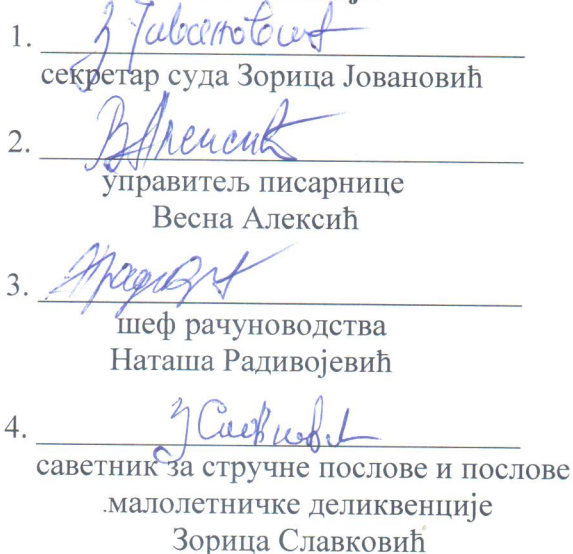 1.
секретар суда Зорица Јовановић
2.
управитељ писарнице
Весна Алексић
3.
шеф рачуноводства
Наташа Радивојевић
4.
саветник за стручне послове и послове
.малолетничке деликвенције
Зорица Славковић